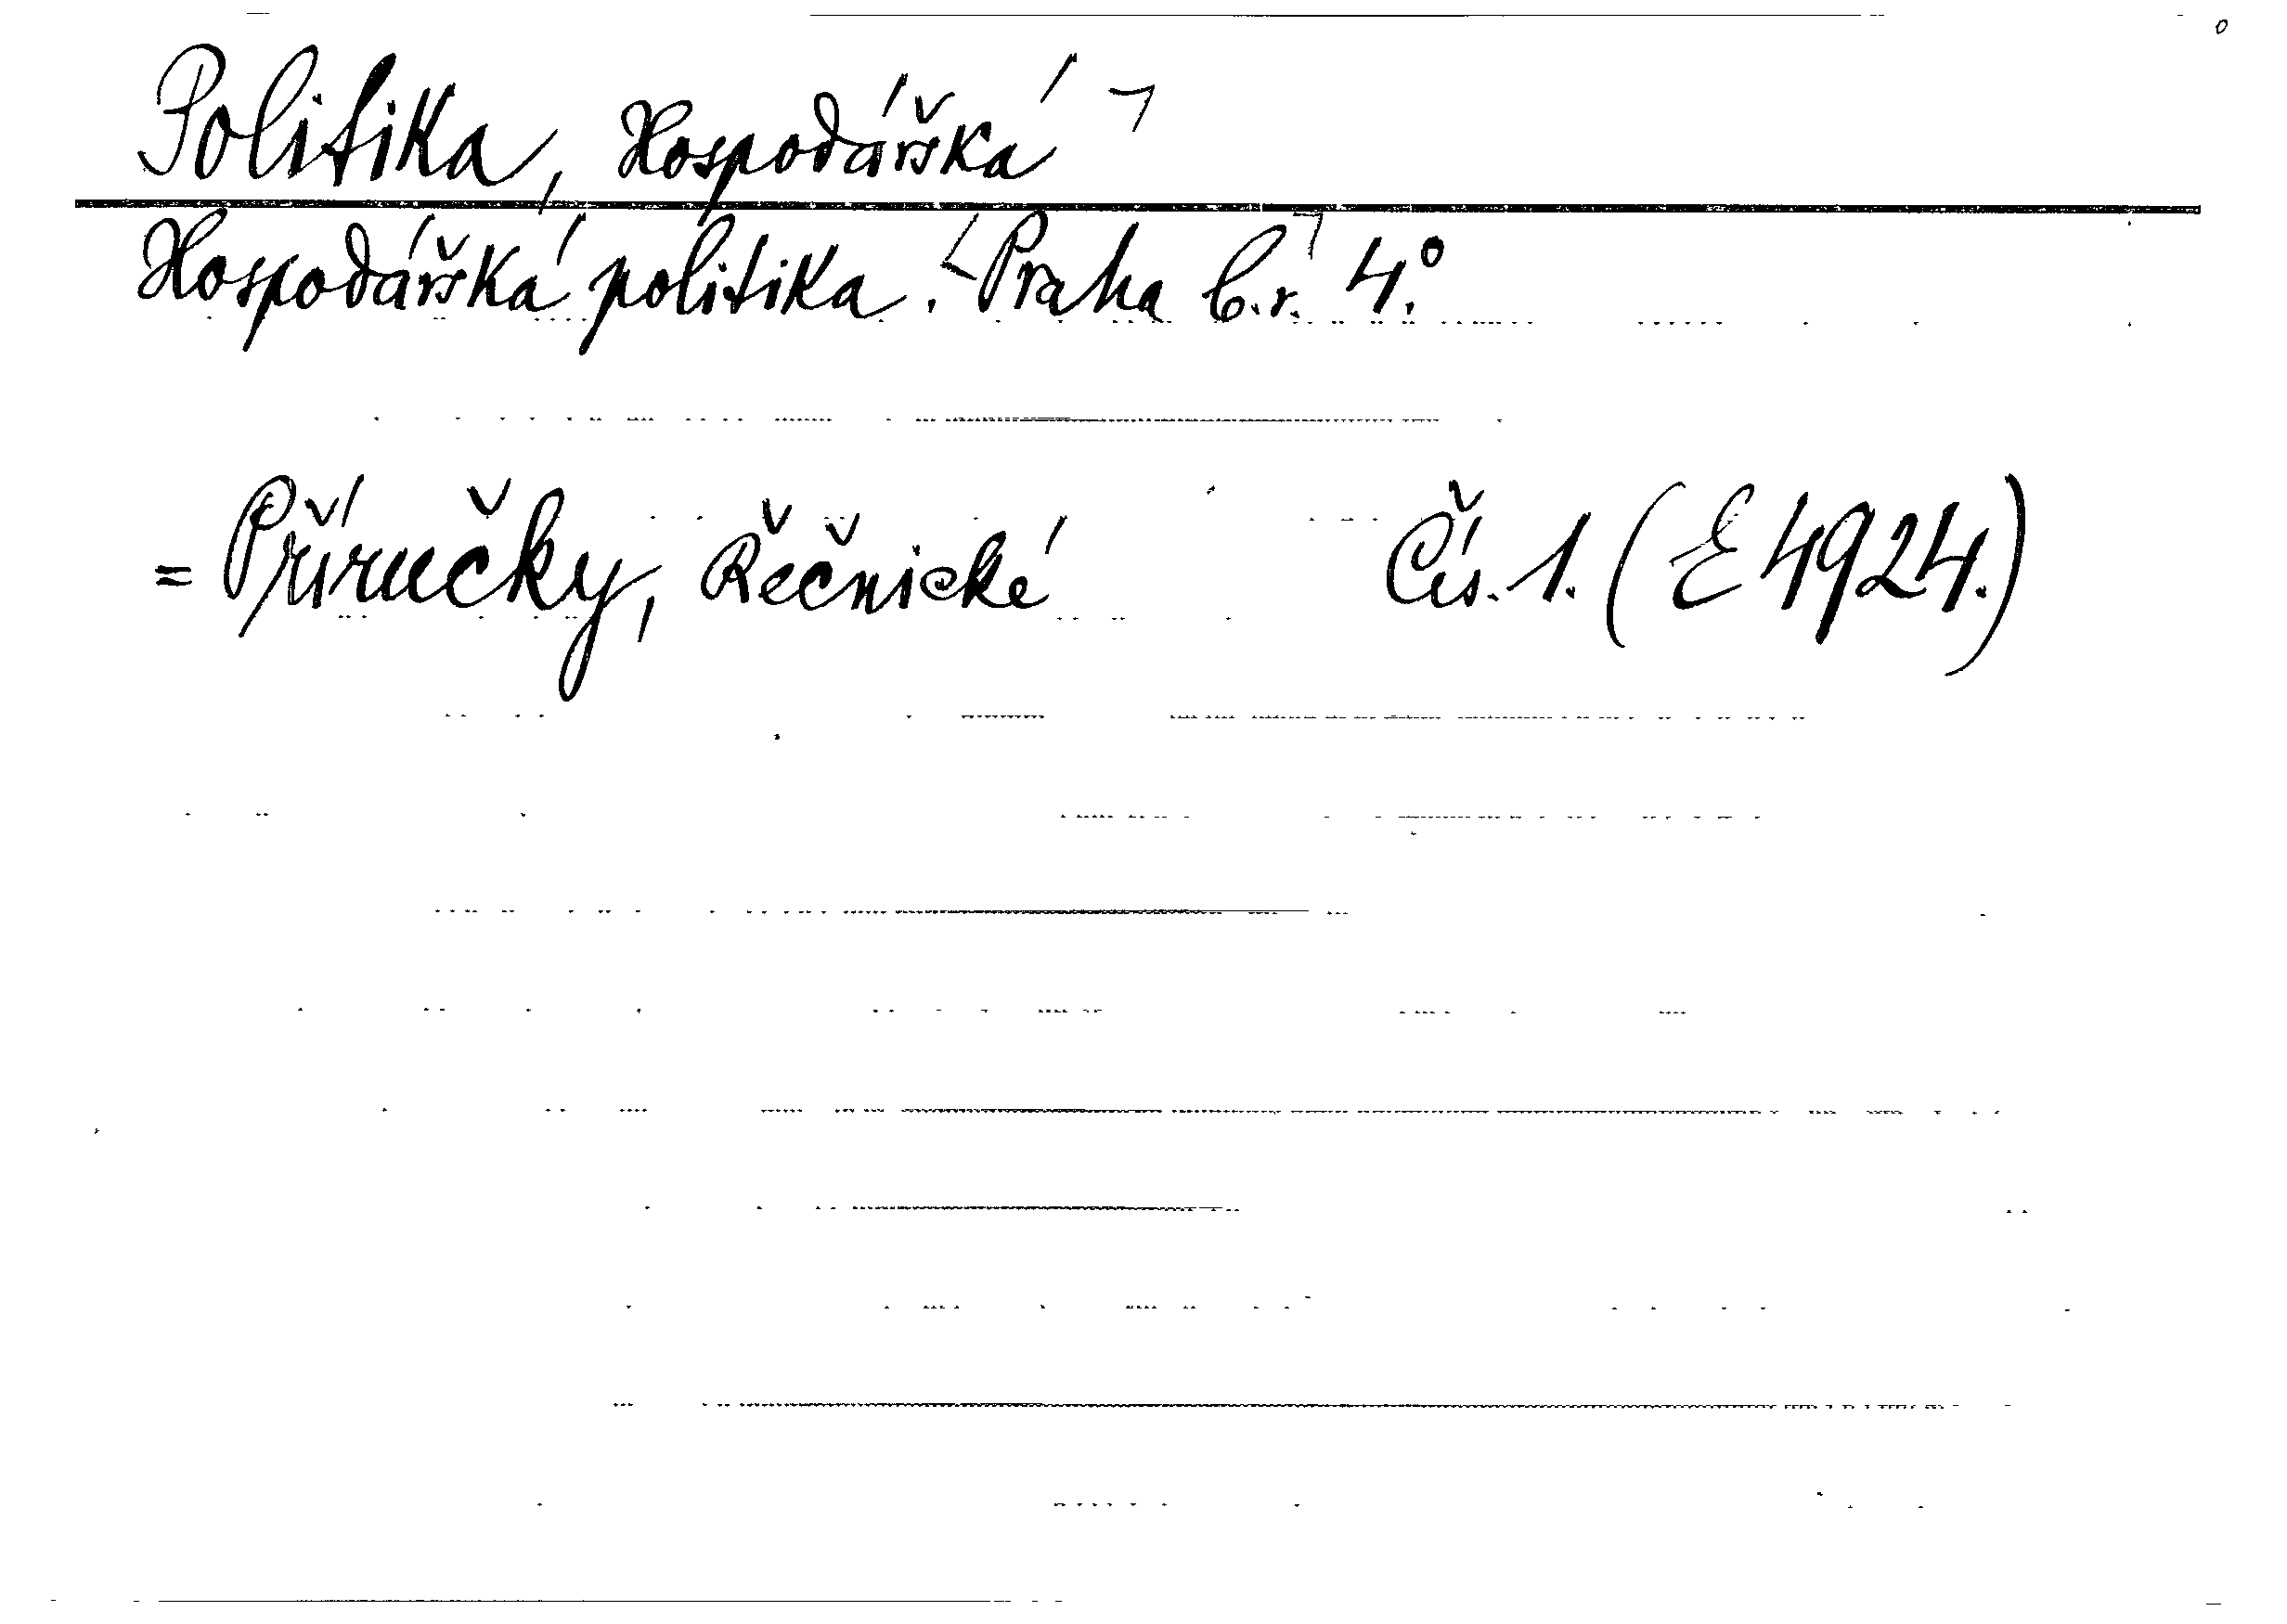 Politika, Hospodářská ¬
Hospodářská politika. ⌊Praha b.r.⌉ 4.°
= Příručky, Řečnické Čís. 1. (E 4924.)